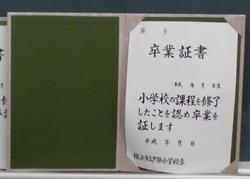 第 号
卒業証書
平成 年 月 日生
小学校の課程を修了
したことを認め卒業を
証します
平成 年 月 日
横浜市立戸部小学校長